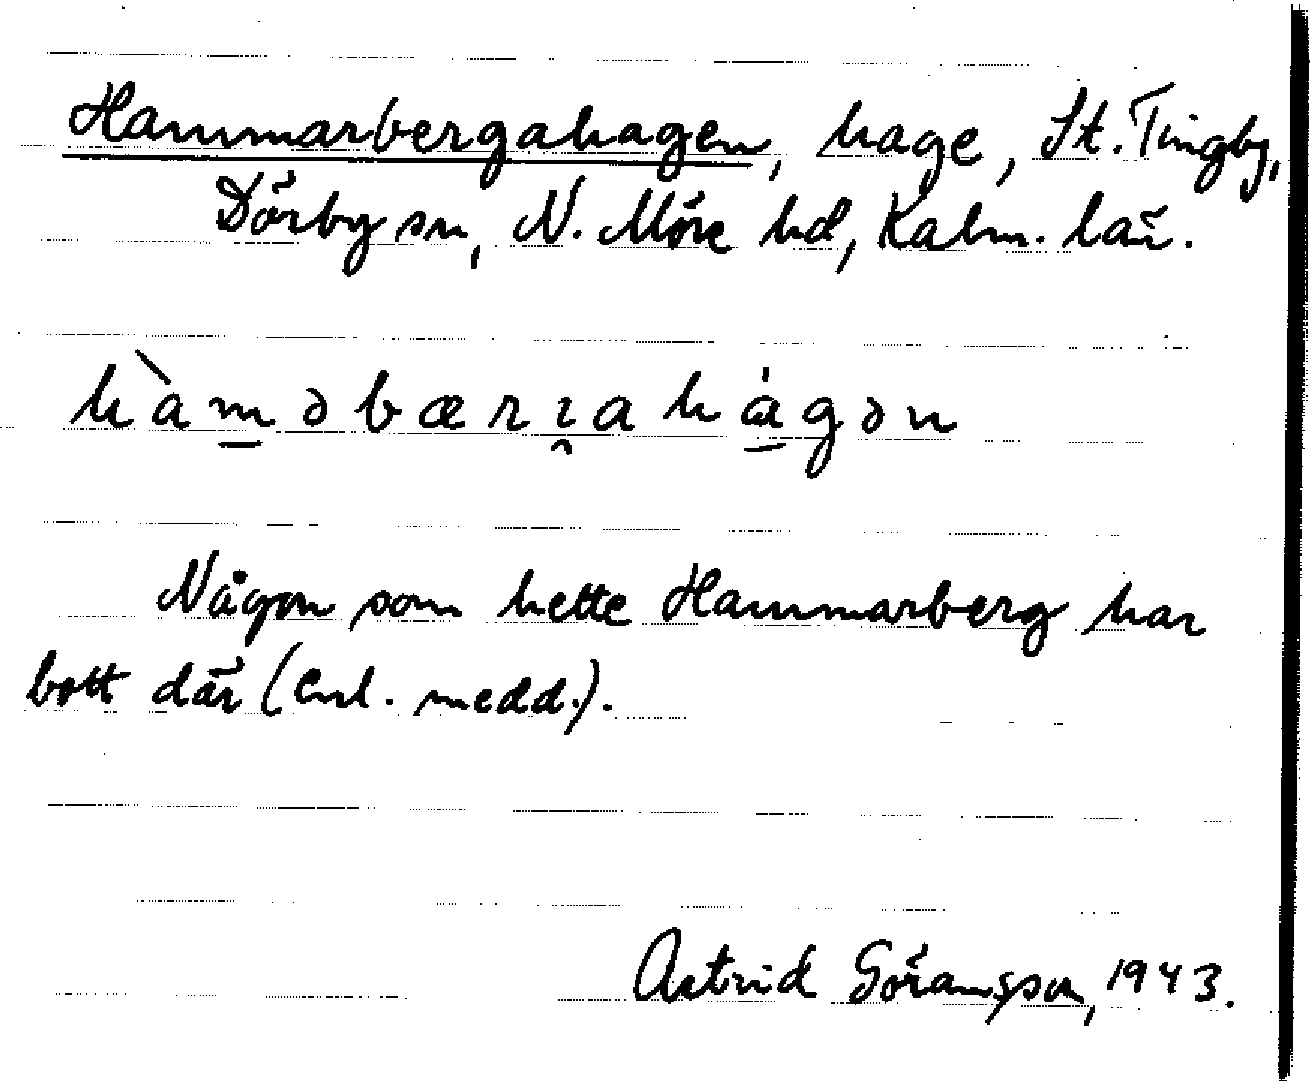 Hammarbergahagen, hage, St. Tingby,
Dörby sn, N. Möre hd, Kalm. län.
hàməbærı̯ahágən
Någon som hette Hammarberg har
bott där (Enl. medd.).
Astrid Göransson, 1943.